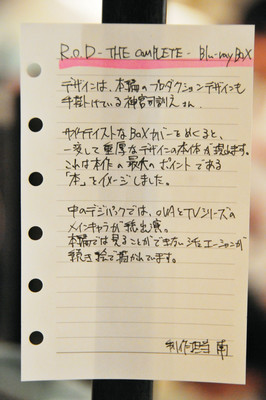 R.O.D -THE COMPLETE- Blu-ray BOX
デザインは、本編のプロダクションデザインも
手掛けている神宮司訓之さん。
サイドティストなBOXカバーをめくると、
一変して重厚なデザインの本体が現れます。
これは本作の最大のポイントである
「本」をイメージしました。
中のデジパックでは、OVAとTVシリーズの
メインキャラが総出演。
本編では見ることができないシチュエーションが
続き絵で描かれています。
制作担当 南